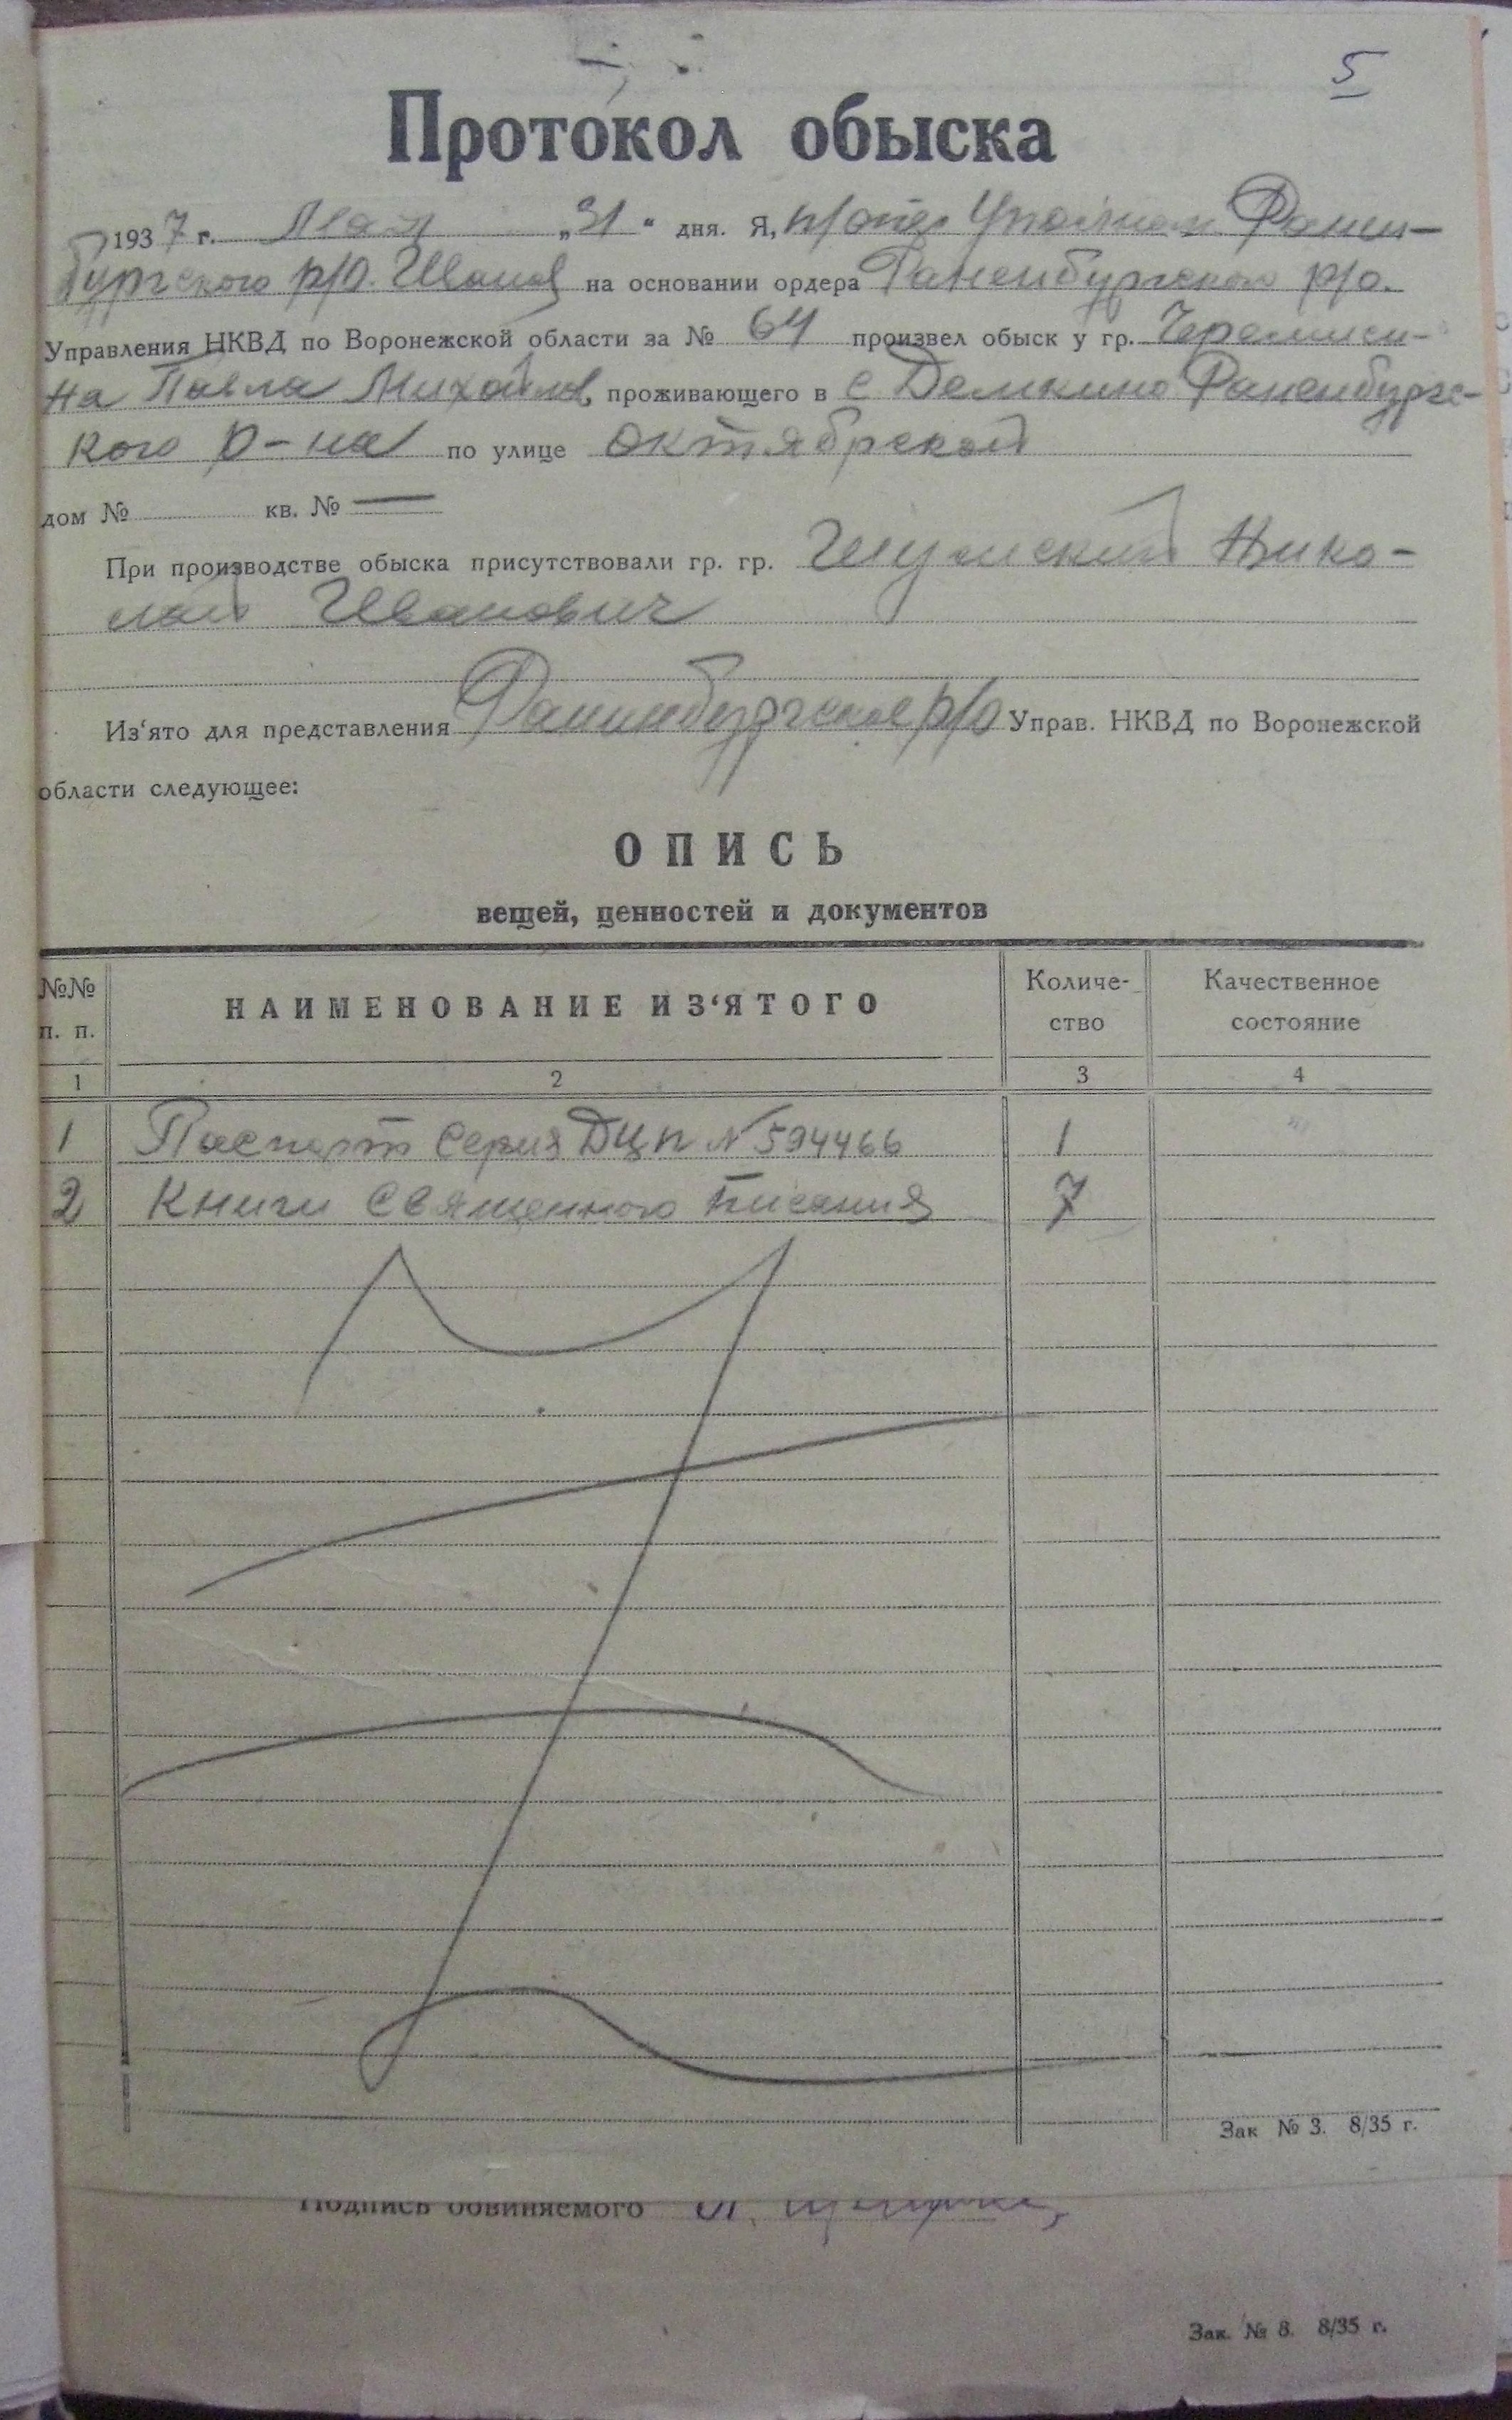 5
Протокол обыска
1937 г. Мая „31“ дня. Я, п/опер Уполном Ранен-
бургского р/о. Иванов на основании ордера Раненбургского р/о.
Управления НКВД по Воронежской области за № 64 произвел обыск у гр. Черемиси-
на Павла Михайлов, проживающего в с Демкино Раненбургс-
кого р-на по улице октябрской
дом № кв. № —
При производстве обыска присутствовали гр. гр. Шумский Нико-
лай Иванович
Из‘ято для представления Раненбургское р/о Управ. НКВД по Воронежской
области следующее:
ОПИСЬ
вещей, ценностей и документов
№№ п. п. НАИМЕНОВАНИЕ ИЗ‘ЯТОГО Количе-ство Качественное состояние
1 2 3 4
1 Паспорт Серия ДЦП № 594466 1 "
2 Книги Священного Писания 7
Зак № 3. 8/35 г.
Подпись обвиняемого
Зак. № 8. 8/35 г.